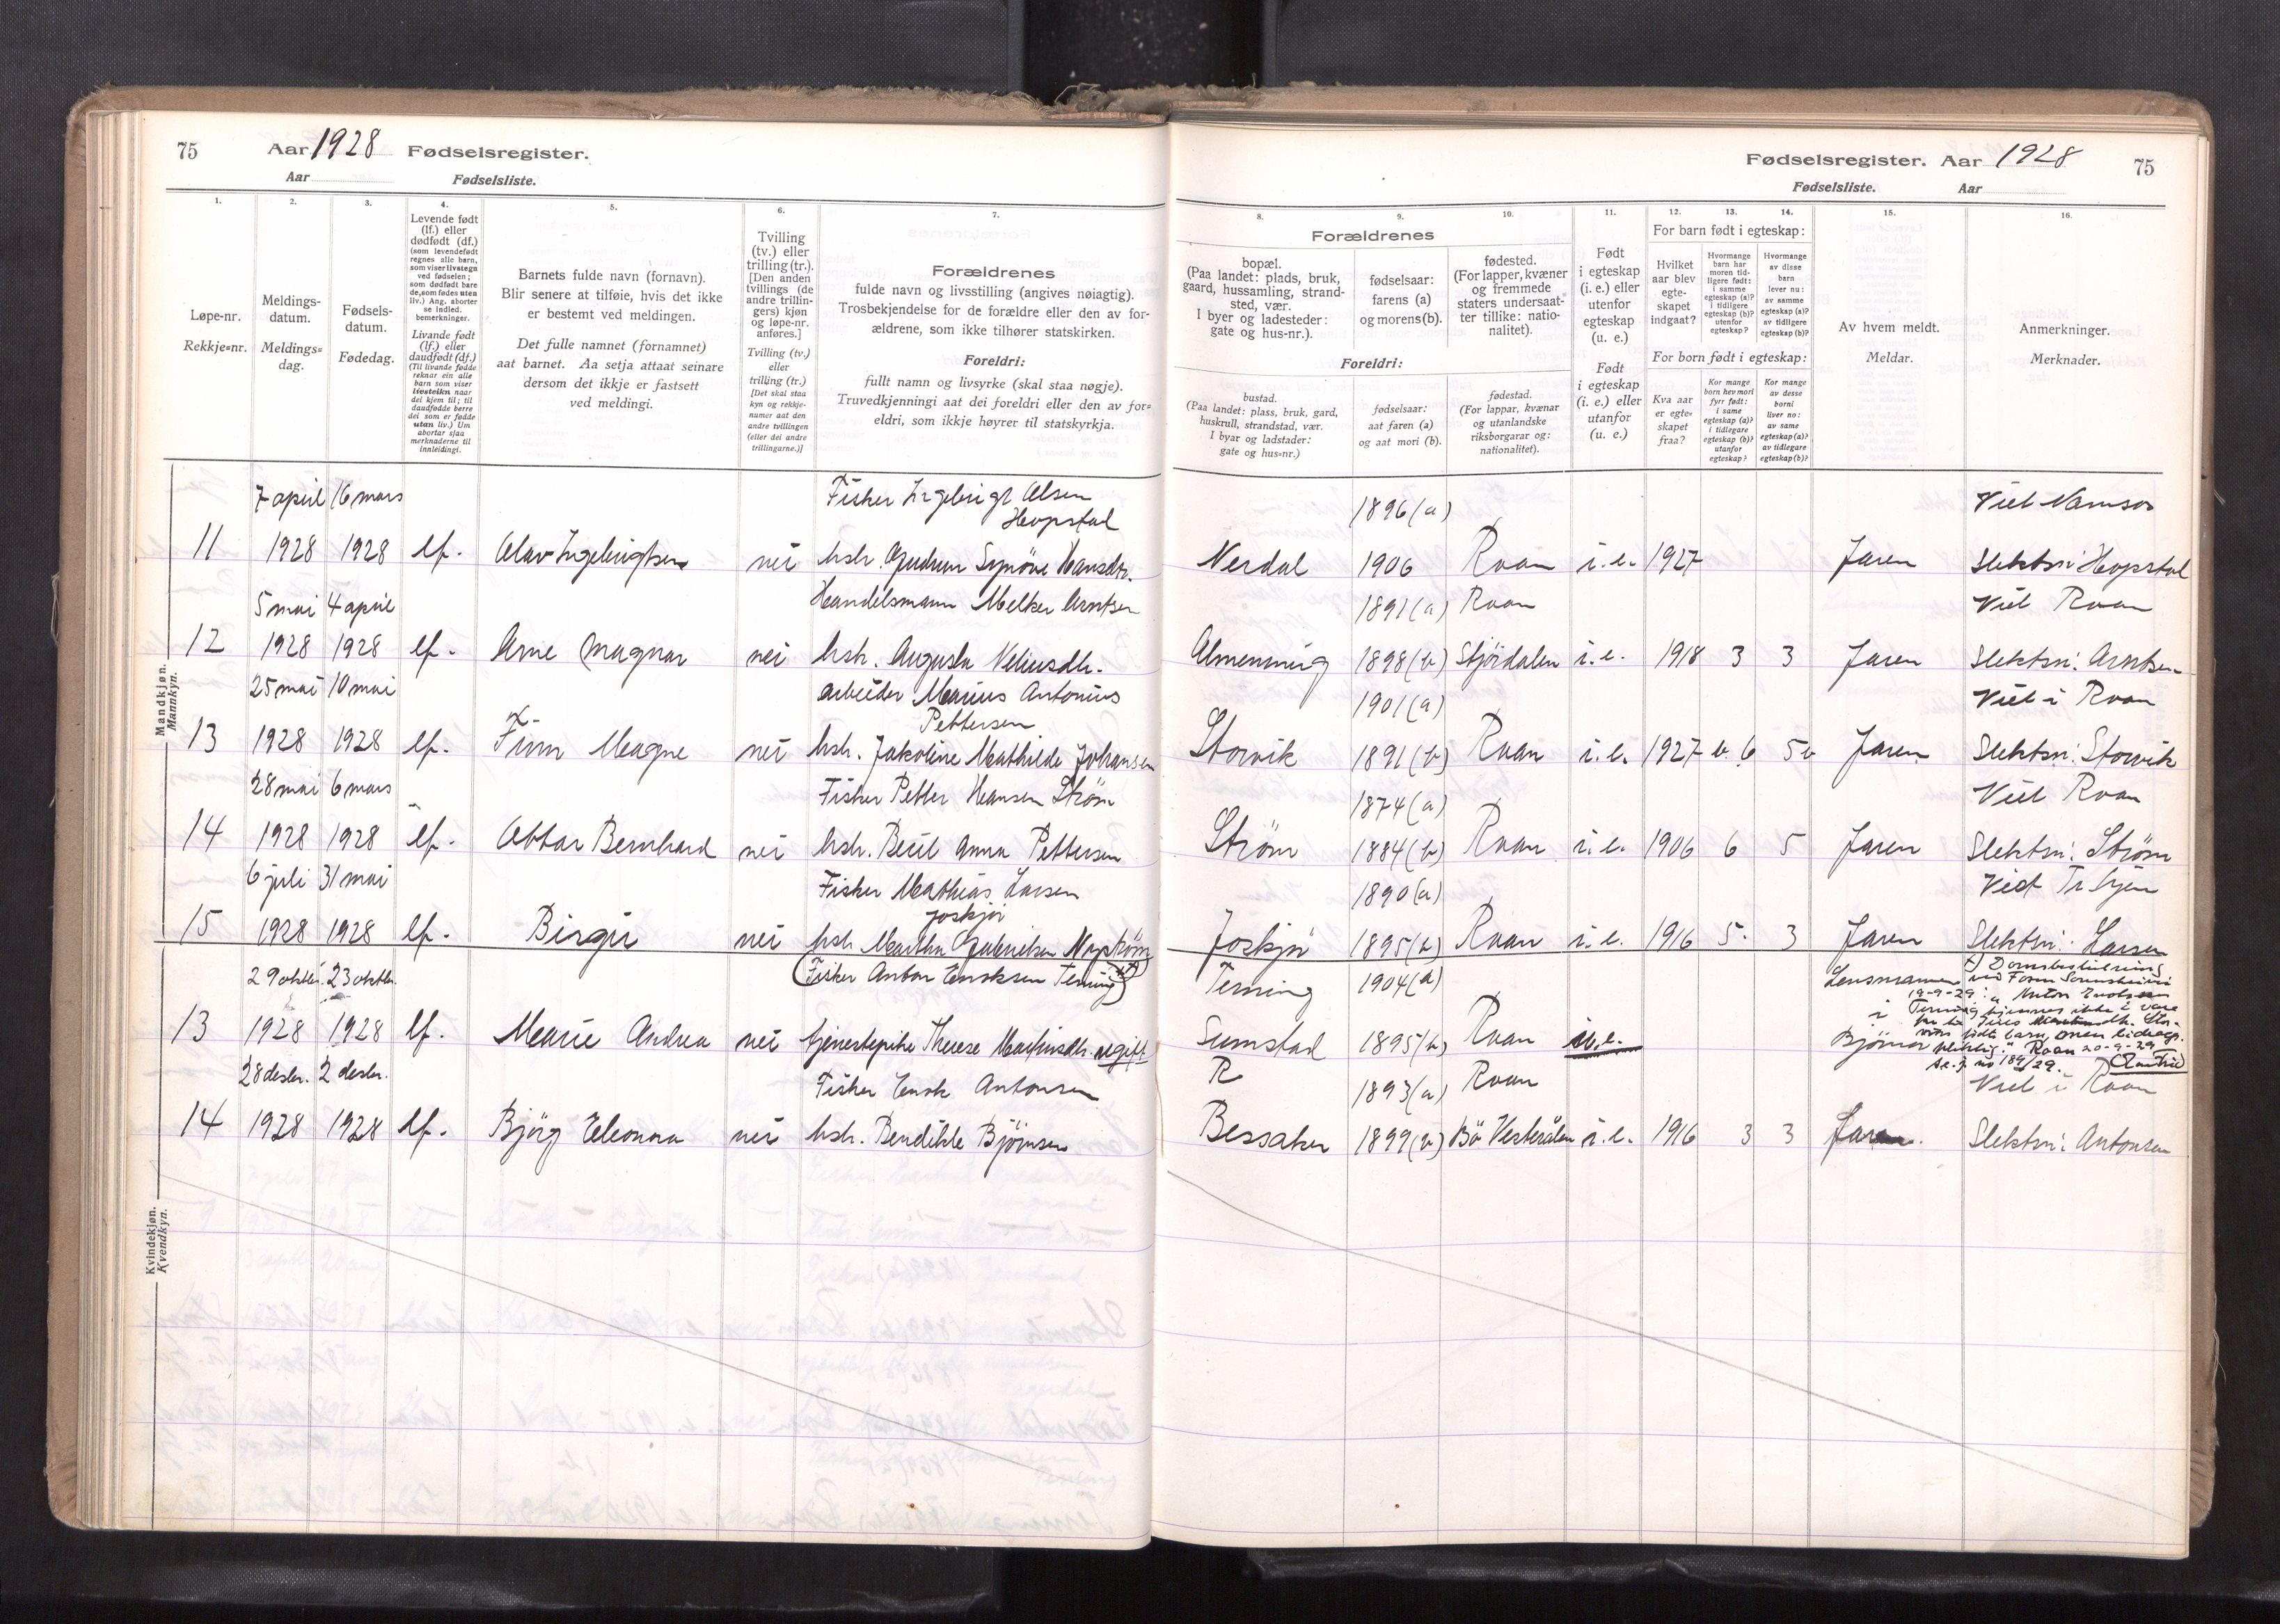 75 Aar 1928 Fødselsregister.
Aar Fødselsliste.
Fødselsregister. Aar 1928 75
Fødselsliste. Aar
1.
Løpe-nr.
Rekkje=nr.
2.
Meldings-
datum.
Meldings=
dag.
3.
Fødsels-
datum.
Fødedag.
4.
Levende født
(lf.) eller
dødfødt (df.)
(som levendefødt
regnes alle barn,
som viser livstegn
ved fødselen;
som dødfødt bare
de, som fødes uten
liv.) Ang. aborter
se indled.
bemerkninger.
Livande født
(lf.) eller
daudfødt (df.)
(Til livande fødde
reknar ein alle
barn som viser
livsteikn naar
dei kjem til; til
daudfødde berre
dei som er fødde
utan liv.) Um
abortar sjaa
merknaderne til
innleidingi.
5.
Barnets fulde navn (fornavn).
Blir senere at tilføie, hvis det ikke
er bestemt ved meldingen.
Det fulle namnet (fornamnet)
aat barnet. Aa setja attaat seinare
dersom det ikkje er fastsett
ved meldingi.
6.
Tvilling
(tv.) eller
trilling (tr.).
[Den anden
tvillings (de
andre trillin-
gers) kjøn
og løpe-nr.
anføres.]
Tvilling (tv.)
eller
trilling (tr.)
[Det skal staa
kyn og rekkje-
numer aat den
andre tvillingen
(eller dei andre
trillingarne.)]
7.
Forældrenes
fulde navn og livsstilling (angives nøiagtig).
Trosbekjendelse for de forældre eller den av for-
ældrene, som ikke tilhører statskirken.
Foreldri:
fullt namn og livsyrke (skal staa nøgje).
Truvedkjenningi aat dei foreldri eller den av for=
eldri, som ikkje høyrer til statskyrkja.
Forældrenes
8.
bopæl.
(Paa landet: plads, bruk,
gaard, hussamling, strand-
sted, vær.
I byer og ladesteder:
gate og hus-nr.).
9.
fødselsaar:
farens (a)
og morens (b).
10.
fødested.
(For lapper, kvæner
og fremmede
staters undersaat-
ter tillike: natio-
nalitet).
Foreldri:
bustad.
(Paa landet: plass, bruk, gard,
huskrull, strandstad, vær.
I byar og ladstader:
gate og hus=nr.)
fødselsaar:
aat faren (a)
og aat mori (b).
fødestad.
(For lappar, kvænar
og utanlandske
riksborgarar og:
nationalitet).
11.
Født
i egteskap
(i. e.) eller
utenfor
egteskap
(u. e.)
Født
i egteskap
(i. e.) eller
utanfor
(u. e.)
For barn født i egteskap:
12.
Hvilket
aar blev
egte-
skapet
indgaat?
13.
Hvormange
barn har
moren tid-
ligere født:
i samme
egteskap (a)?
i tidligere
egteskap (b)?
utenfor
egteskap?
14.
Hvormange
av disse
barn
lever nu:
av samme
egteskap (a)?
av tidligere
egteskap (b)?
For born født i egteskap:
Kva aar
er egte-
skapet
fraa?
Kor mange
born hev mori
fyrr født:
i same
egteskap (a)?
i tidlegare
egteskap (b)?
utanfor
egteskap?
Kor mange
av desse
borni
liver no:
av same
egteskap (a)?
av tidlegare
egteskap (b)?
15.
Av hvem meldt.
Meldar.
16.
Anmerkninger.
Merknader.
Mandkjøn.
Mannkyn.
7 april 16 mars Fisker Ingebrigt Olsen 1896 (a) Viet Namsos
Hopstad
11 1928 1928 lf. Olav Ingebrigtsen nei hstr. Gudrun Synöve Hansdtr. Nerdal 1906 Roan i.e. 1927 Faren Slektsn: Hopstad
5 mai 4 april Handelsmann Melker Arntsen 1891 (a) Roan Viet Roan
12 1928 1928 lf. Arne Magnar nei hstr. Augusta Veliusdtr. Almenning 1898 (b) Stjördalen i.e. 1918 3 3 Faren Slektsn: Arntsen
25 mai 10 mai arbeider Marius Antonius 1901 (a) Viet i Roan
Pettersen
13 1928 1928 lf. Finn Magne nei hstr. Jakoline Mathilde Johansen Storvik 1891 (b) Roan i.e. 1927 b. 6 5 b Faren Slektsn: Storvik
28 mai 6 mars Fisker Petter Hansen Ström 1874 (a) Viet Roan
14 1928 1928 lf. Ottar Bernhard nei hstr. Beril Anna Pettersen Ström 1884 (b) Roan i.e. 1906 6 5 Faren Slektsn: Ström
6 juli 31 mai Fisker Mathias Larsen 1890 (a) Viet
Joskjör
15 1928 1928 lf. Birger nei hstr. Martha Gabrielsen Joskjör 1895 (b) Roan i.e. 1916 5. 3 Faren Slektsn: Larsen
Kvindekjøn.
Kvendkyn.
29 oktbr. 23 oktbr. (Fisker Anton Enoksen Terning x) Terning 1904 (a) Lensmannen
i
Bjömör
x) Domsbeslutning
ved Fosen Sorenskriveri
19-9-29: " Anton Enoksen
Terning kjennes ikke å være
far til
födte barn, men bidrags-
pliktig." Roan 20-9-29
189/29.
13 1928 1928 lf. Marie Andrea nei tjenestepike Therese Martinsdtr. ugift Sumstad 1895 (b) Roan u.e.
28 desbr. 2 desbr. Fisker Enok Antonsen R 1893 (a) Roan Viet i Roan
14 1928 1928 lf. Bjørg Eleonora nei hstr. Bendikte Bjørnsen Bessaker 1899 (b) Bö Vesterålen i.e. 1916 3 3 Faren. Slektsn: Antonsen